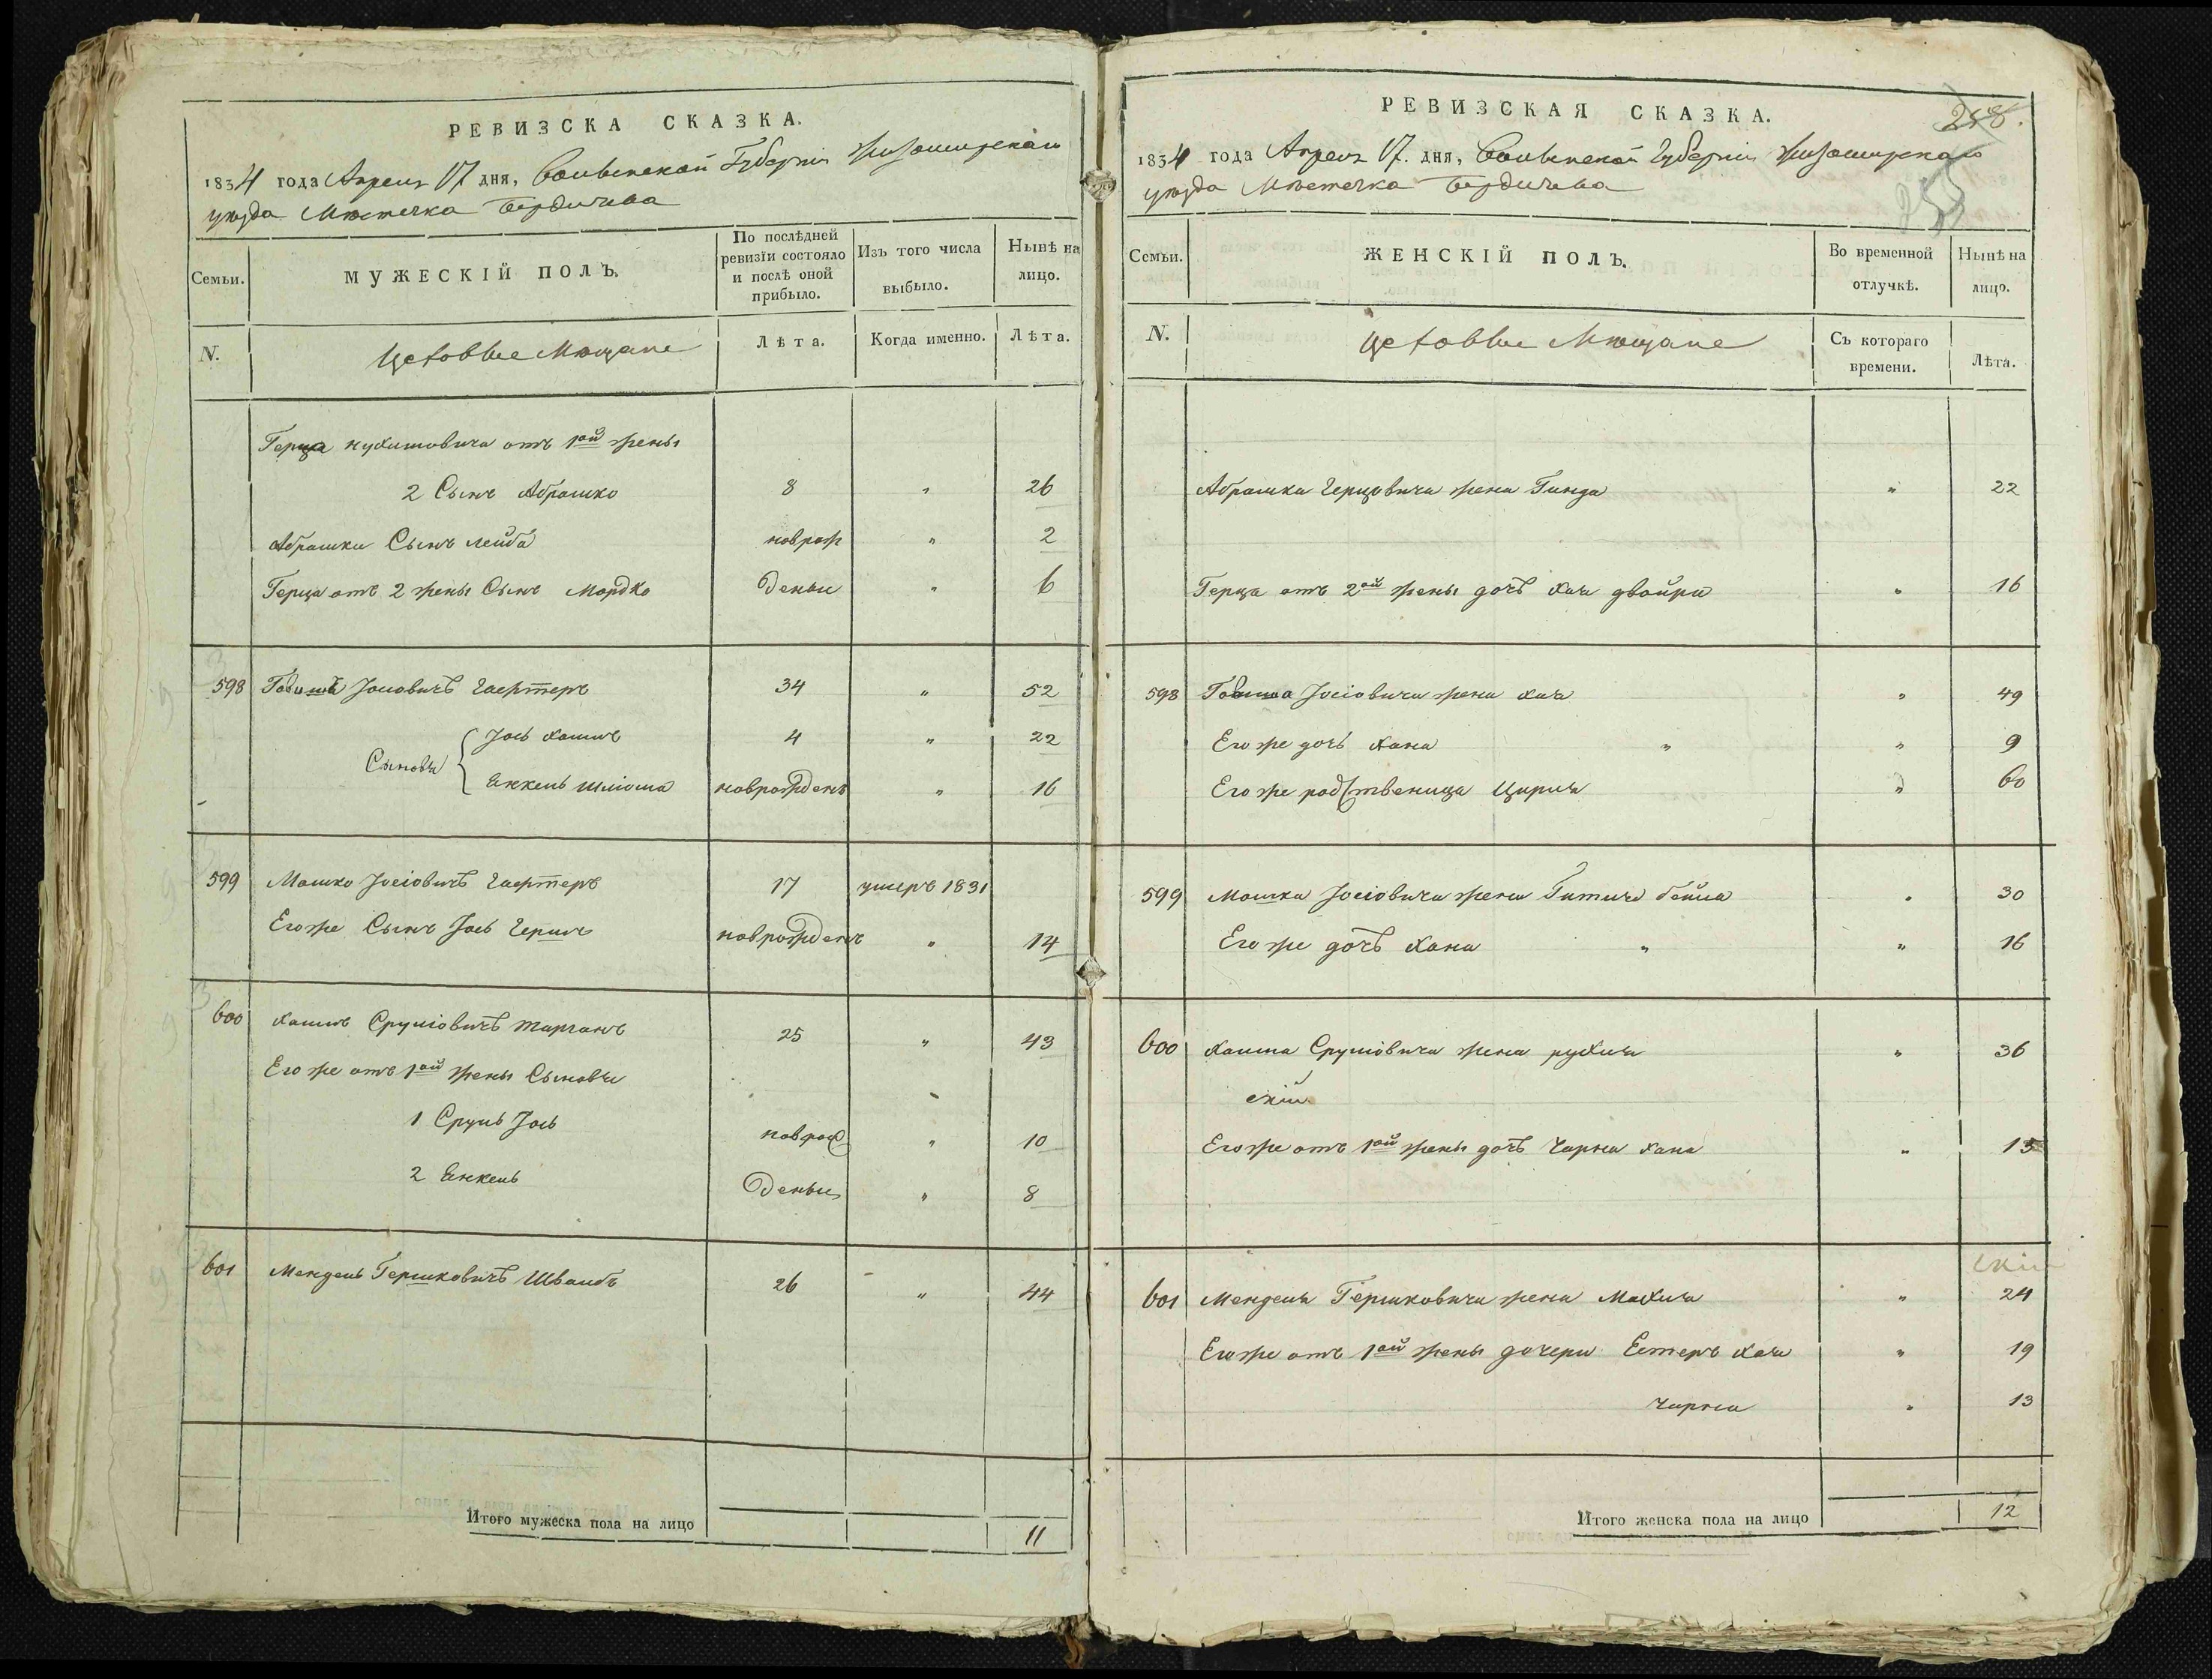 РЕВИЗСКА СКАЗКА.
1834 года Апреля 17 дня, Волынской Губерніи Житомирскаго
уѣзда Мѣстечка Бердичева
Семьи. МУЖЕСКІЙ ПОЛЪ. По послѣдней ревизіи состояло и послѣ оной прибыло. Изъ того числа выбыло. Нынѣ на лицо.
N. Цеховые Мѣщане Лѣта. Когда именно. Лѣта.
Герца Нухимовича отъ 1ой жены
2 Сынъ Абрашко 8 " 26
Абрашки Сынъ Лейба новрож " 2
Герца отъ 2 жены Сынъ Мордко денъи " 6
598 Іосіовичъ 34 " 52
Сыновья { Іось Хаимъ 4 " 22
Янкель Шліома новрожденъ " 16
599 Мошко Іосіовичъ 17 умеръ 1831
Его же Сынъ Іось Гершъ новрожденъ " 14
600 Хаимъ Сруліовичъ 25 " 43
Его же отъ 1ой жены Сыновья
1 Сруль Іось новрож " 10
2 Янкель денъи " 8
601 Мендель Гершковичъ Швалбъ 26 " 44
Итого мужеска пола на лицо 11
РЕВИЗСКАЯ СКАЗКА.
258.
255
1834 года Апреля 17. дня, Волынской Губерніи Житомирскаго
уѣзда Мѣстечка Бердичева
Семьи. ЖЕНСКІЙ ПОЛЪ. Во временной отлучкѣ. Нынѣ на лицо.
N. Цеховые Мѣщане Съ котораго времени. Лѣта.
Абрашка Герцовича жена Гинда " 22
Герца отъ 2ой жены дочь Хая Двойра " 16
598 Іосіовича жена Хая " 49
Его же дочь Хана " " 9
Его же родственица Цирля " 60
599 Мошка Іосіовича жена Бейла " 30
Его же дочь Хана " " 16
600 Хаима Сруліовича жена Рухля " 36
Его же отъ 1ой жены дочь Чарна Хана " 15
601 Менделя Гершковича жена Махля " 24
Его же отъ 1ой жены дочери Естеръ Хая " 19
Чарна " 13
Итого женска пола на лицо 12